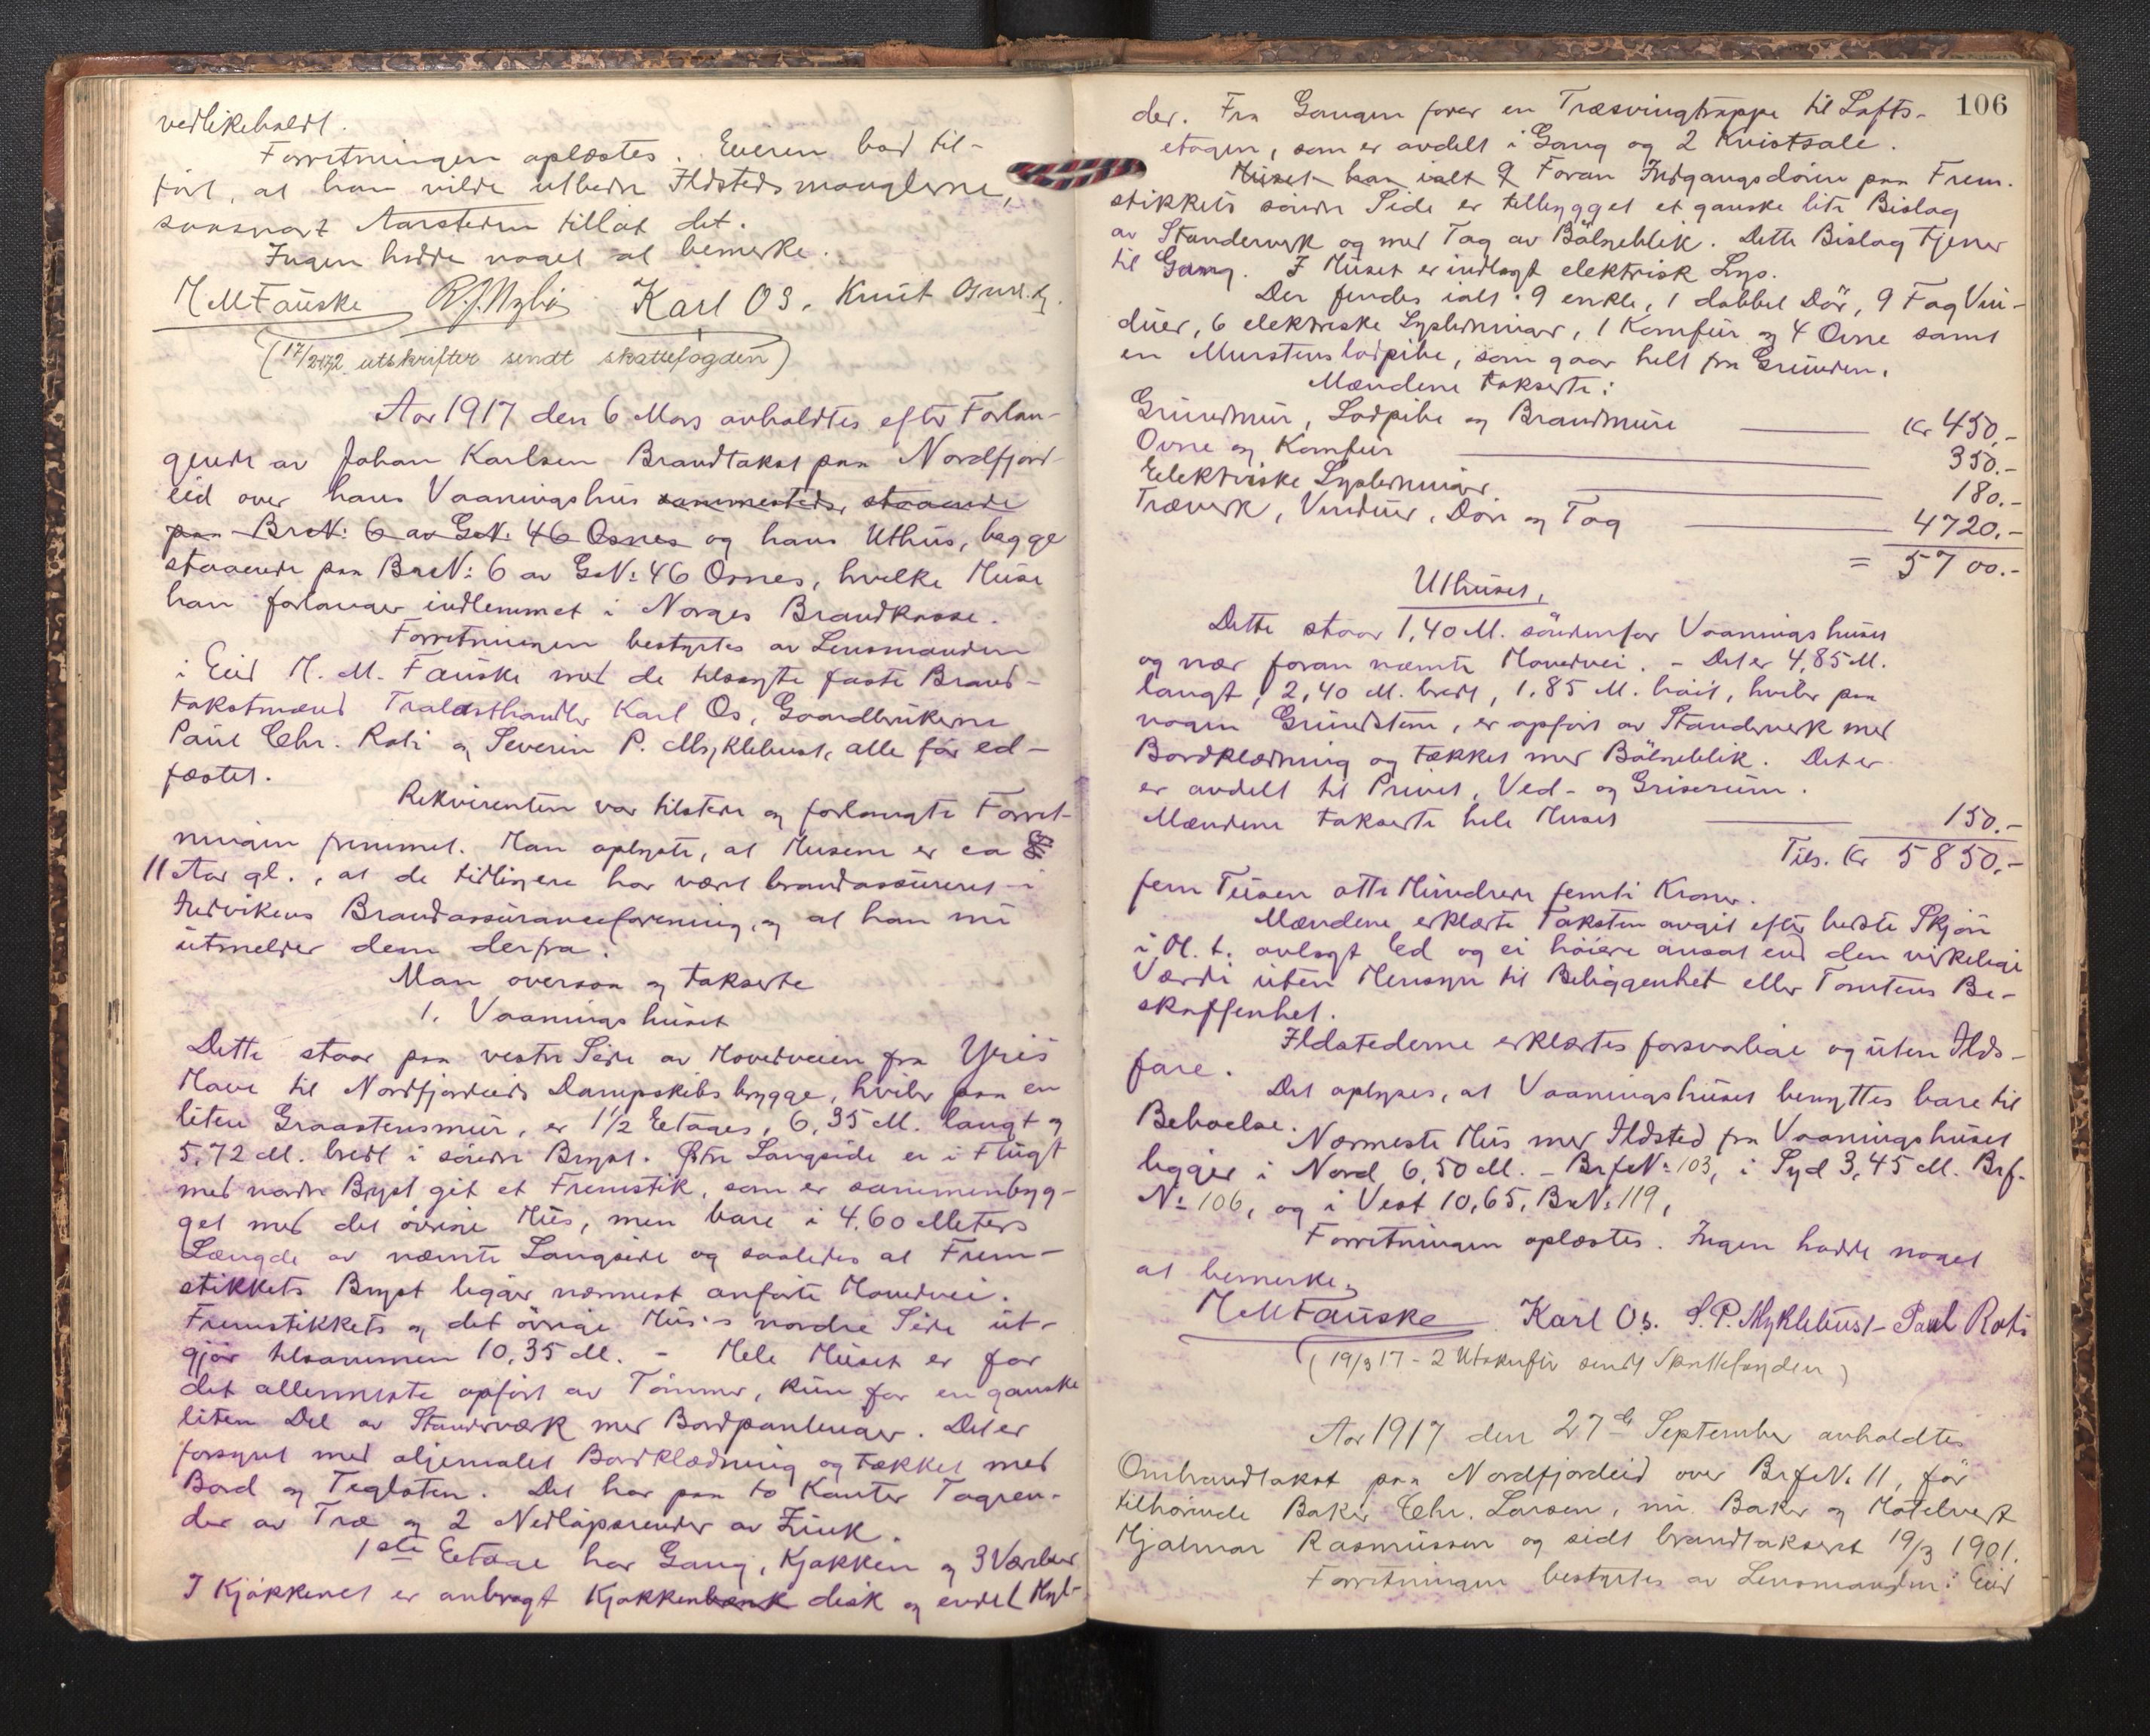 vedlikeholdt.
Forretningen oplæstes. Eieren bad til-
ført, at han vilde utbedre Ildstedsmanglerne,
saasnart Aarstiden tillat det.
Ingen hadde noget at bemerke.
H M Fauske Karl Os. Knut
(17/2 2 utskrifter sendt skattefogden)
Aar 1917 den 6 Mars avholdtes efter Forlan-
gende av Johan Karlsen Brandtakst paa Nordfjord-
eid over hans Vaaningshus sammesteds, staaende
paa BrN: 6 av GN: 46 Osnes og hans Uthus, begge
staaende paa BrN: 6 av GN: 46 Osnes, hvilke Huse
han forlanger indlemmet i Norges Brandkasse.
Forretningen bestyrtes av Lensmanden
i Eid H. M. Fauske med de tilsagte faste Brand-
takstmænd Trælasthandler Karl Os, Gaardbrukerne
Paul Chr. Roti og Severin P. Myklebust, alle før ed-
fæstet.
Rekvirenten var tilstede og forlangte Forret-
ningen fremmet. Han oplyste, at Husene er ca
11 Aar gl., at de tidligere har været brandassureret i
Indvikens Brandassuranceforening, og at han nu
utmelder dem derfra.
Man oversaa og takserte
1. Vaaningshuset
Dette staar paa vestre Side av Hovedveien fra Yris
Have til Nordfjordeids Dampskibsbrygge, hviler paa en
liten Graastensmur, er 1 1/2 Etages, 6,35 M. langt og
5,72 M. bredt i søndre Bryst. Østre Langside er i Flugt
med nordre Bryst git et Fremstik, som er sammenbyg-
get med det øvrige Hus, men bare i 4,60 Meters
Længde av nævnte Langside og saaledes at Frem-
stikkets Bryst ligger nærmest anførte Hovedvei.
Fremstikkets og det øvrige Hus's nordre Side ut-
gjør tilsammen 10,35 M. - Hele Huset er for
det allermeste opført av Tømmer, kun for en ganske
liten Del av Standværk med Bordpanlinger. Det er
forsynt med oljemalet Bordklædning og tækket med
Bord og Teglsten. Det har paa to Kanter Tagren-
der av Træ og 2 Nedløpsrender av Zink.
1ste Etage har Gang, Kjøkken og 3 Værelser
I Kjøkkenet er anbragt Kjøkkenbænk disk og endel Hyl-
106
der. Fra Gangen fører en Træsvingtrappe til Lofts-
etagen, som er avdelt i Gang og 2 Kvistsale.
Huset har ialt 9 Foran Indgangsdøren paa Frem-
stikkets søndre Side er tilbygget et ganske lite Bislag
av Standerverk og med Tag av Bølgeblik. Dette Bislag tjener
til Gang. I Huset er indlagt elektrisk Lys.
Der findes ialt: 9 enkle, 1 dobbel Dør, 9 Fag Vin-
duer, 6 elektriske Lysledninger, 1 Komfur og 4 Ovne samt
en Murstenslodpibe, som gaar helt fra Grunden.
Mændene takserte:
Grundmur, Lodpibe og Brandmure Kr 450,-
Ovne og Komfur 350.-
Elektriske Lysledninger 180.-
Træverk, Vinduer, Døre og Tag 4720.-
= 5700.-
Uthuset,
Dette staar 1,40 M. søndenfor Vaaningshuset
og nær foran nævnte Hovedvei. - Det er 4,85 M.
langt, 2,40 M. bredt, 1,85 M. høit, hviler paa
nogen Grundstene, er opført av Standerverk med
Bordklædning og tækket med Bølgeblik. Det er
er avdelt til Privet, Ved- og Griserum.
Mændene takserte hele Huset 150.-
Tils. Kr 5850,-
fem Tusen otte Hundrede femti Kroner.
Mændene erklærte Taksten avgit efter bedste Skjøn
i H. t. avlagt Ed og ei høiere ansat end den virkelige
Værdi uten Hensyn til Beliggenhet eller Tomtens Be-
skaffenhet.
Ildstederne erklærtes forsvarlige og uten Ilds-
fare.
Det oplyses, at Vaaningshuset benyttes bare til
Beboelse.
Nærmeste Hus med Ildsted fra Vaaningshuset
ligger i Nord 6,50 M. - BrfN: 103, i Syd 3,45 M. Brf.
No 106, og i Vest 10,65, BrN: 119,
Forretningen oplæstes. Ingen hadde noget
at bemerke.
H M Fauske Karl Os. S. P. Myklebust - Paul Roti
(19/3 17 - 2 Utskrifter sendt Skattefogden)
Aar 1917 den 27de September avholdtes
Ombrandtakst paa Nordfjordeid over BrfN. 11, før
tilhørende Baker Chr. Larsen, nu Baker og Hotelvert
Hjalmar Rasmussen og sidst brandtaksert 19/3 1901.
Forretningen bestyrtes av Lensmanden i Eid